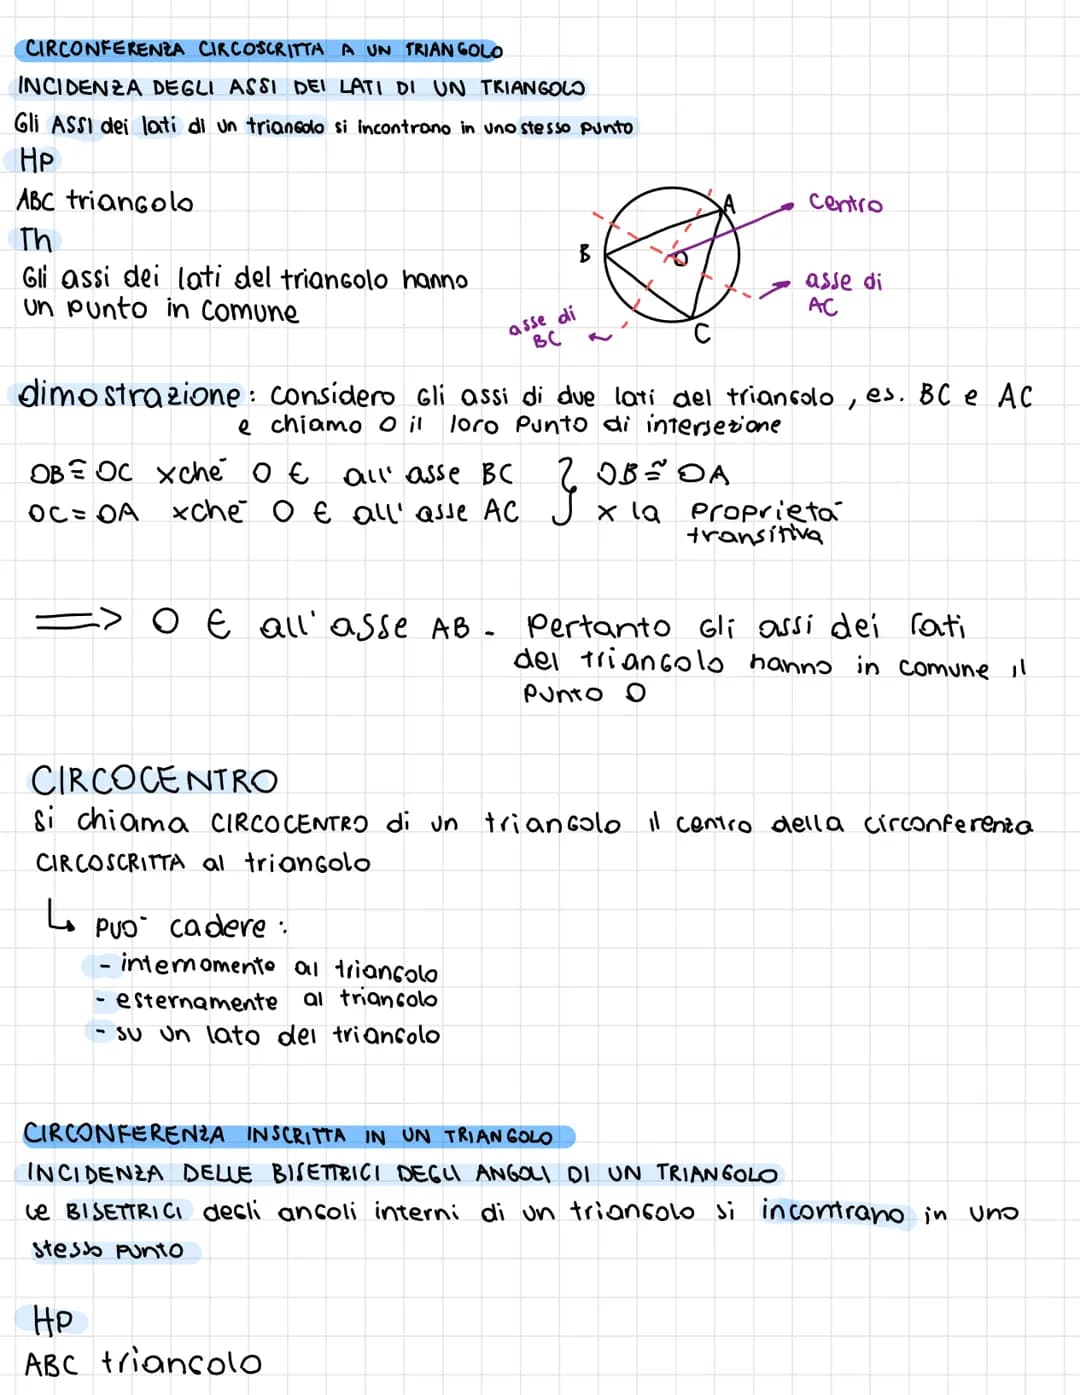 CIRCONFERENZA CIRCOSCRITTA A UN TRIANGOLO
INCIDENZA DEGLI ASSI DEI LATI DI UN TRIANGOLO
Gli ASSI dei lati di un triangolo si incontrano in uno stesso punto
HP
ABC triangolo
Th
Gli assi dei lati del triangolo hanno
un punto in comune
A
B
C
O
centro
asse di
AC
asse di
BC
dimostrazione: considero gli assi di due lati del triangolo, es. BC e AC
e chiamo O il loro punto di intersezione
OB ≅ OC xchè O ∈ all'asse BC } OB ≅ OA
OC = OA xchè O ∈ all'asse AC x la proprietà
transitiva
=> O ∈ all'asse AB - Pertanto gli assi dei lati
del triangolo hanno in comune il
punto O
CIRCOCENTRO
Si chiama CIRCOCENTRO di un triangolo il centro della circonferenza
CIRCOSCRITTA al triangolo
↳ può cadere:
- internamente al triangolo
- esternamente al triangolo
- su un lato del triangolo
CIRCONFERENZA INSCRITTA IN UN TRIANGOLO
INCIDENZA DELLE BISETTRICI DEGLI ANGOLI DI UN TRIANGOLO
Le BISETTRICI degli angoli interni di un triangolo si incontrano in uno
stesso punto
HP
ABC triangolo